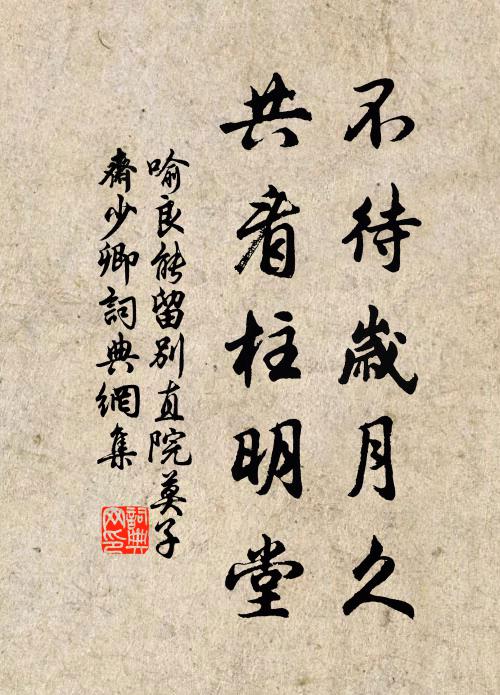 不待歲月久
共看柱明堂
喻良能留別直院莫子
齋少卿詞典網集
詞典
网印